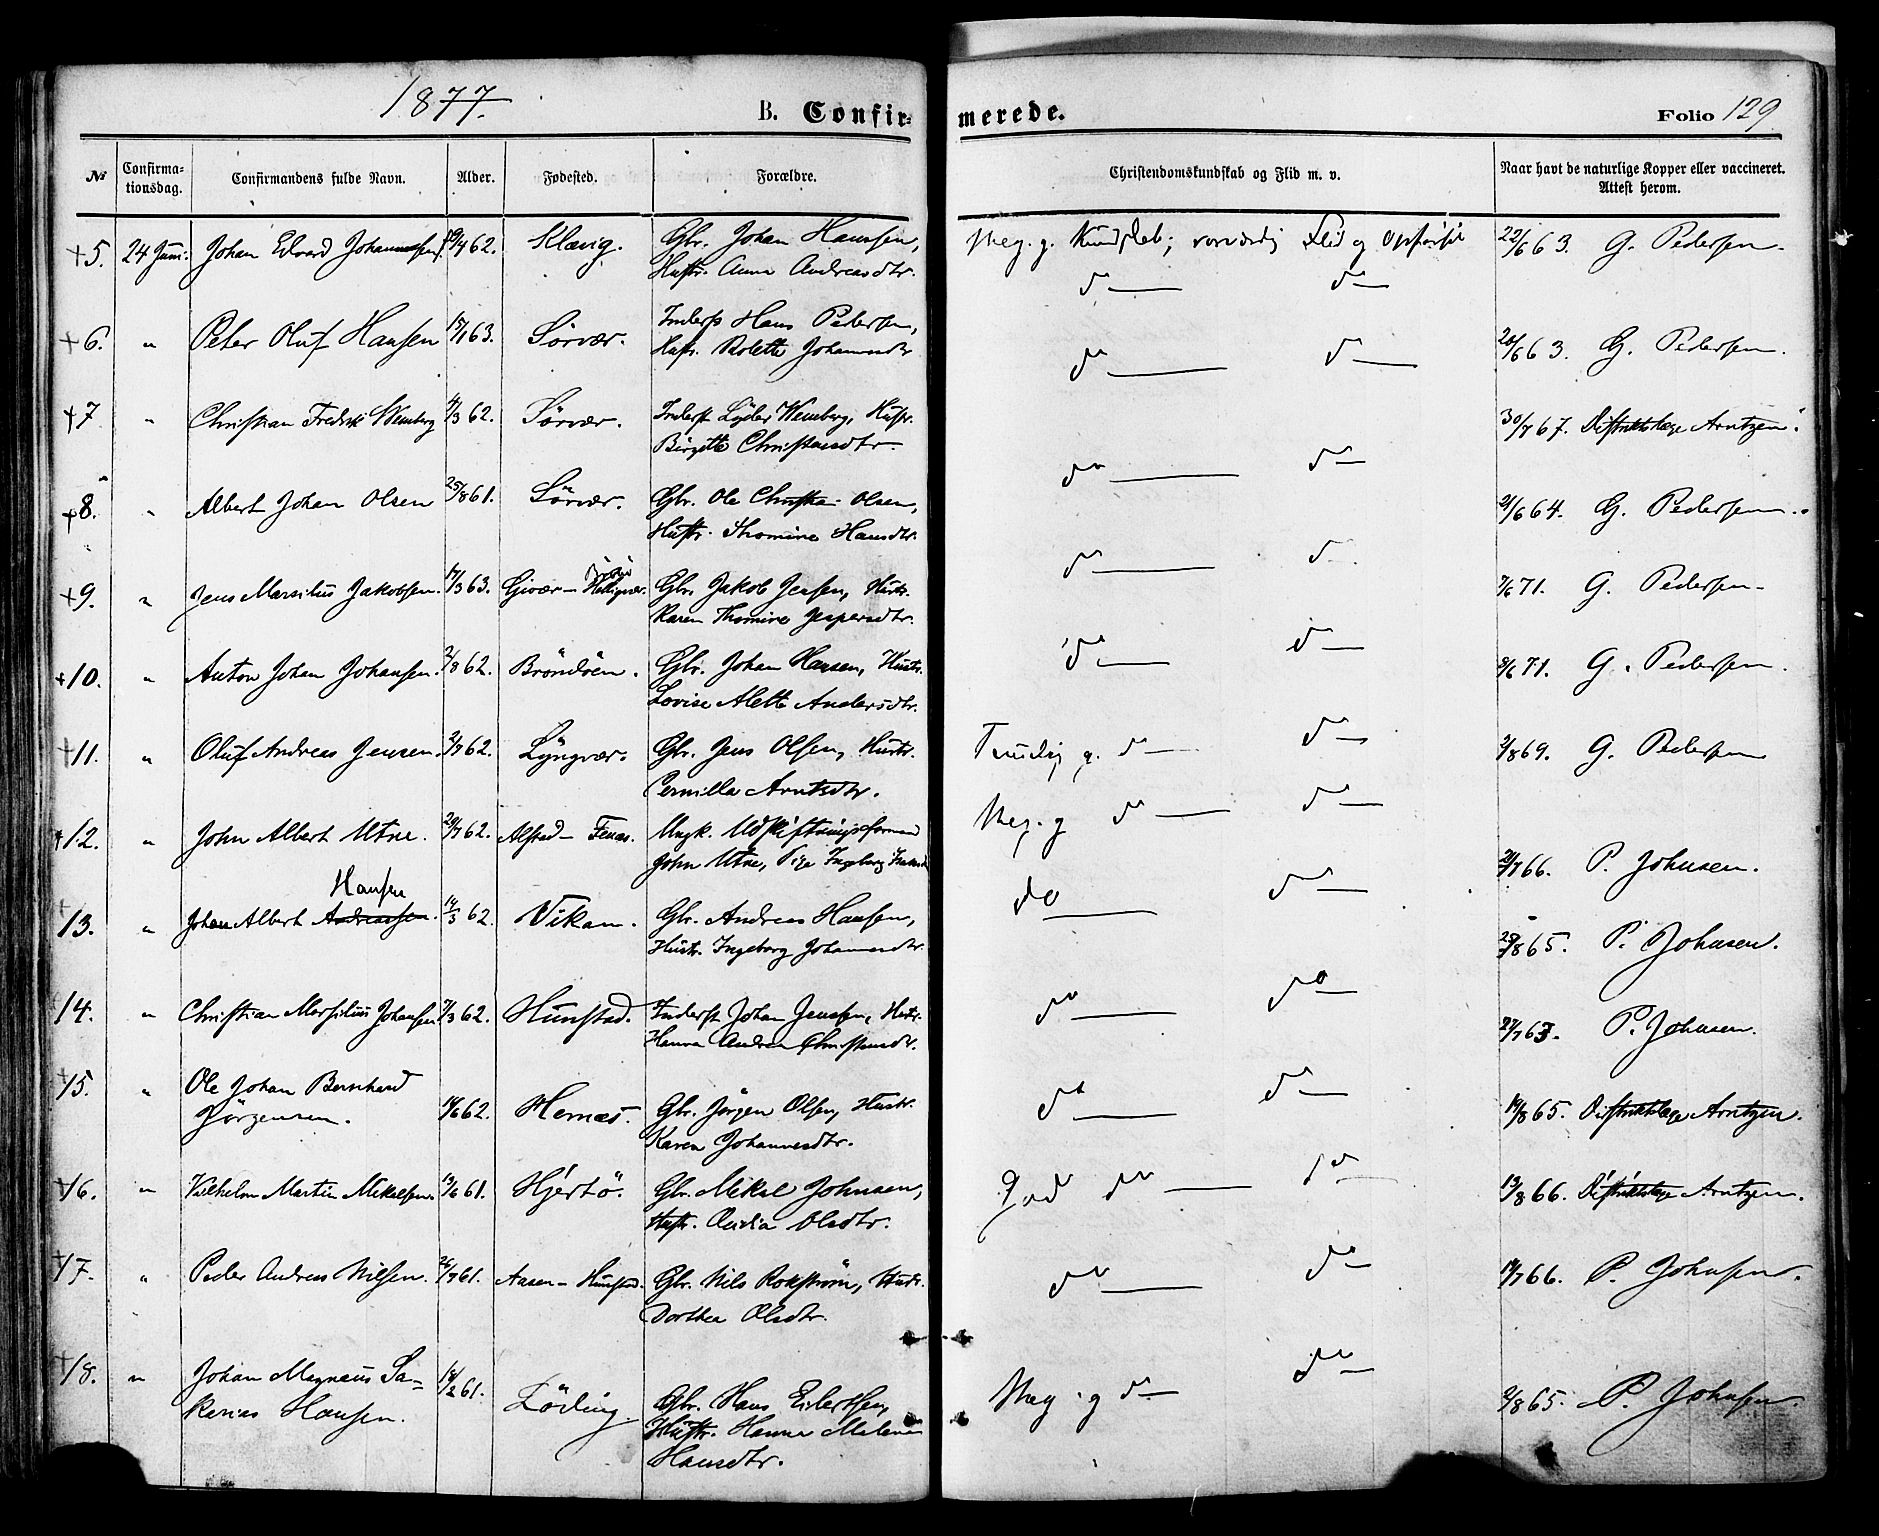 1877.
B. Confirmerede.
Folio 129
№ Confirmationsdag. Confirmandens fulde Navn. Alder. Fødested. Forældre. Christendomskundskab og Flid m. v. Naar havt de naturlige Kopper eller vaccineret. Attest herom.
+5. 24 Juni. Johan Edvard Johannesen. /4 62. Klævig. Gbr. Johan Hansen, Meg. g. Kundskab; Flid og 22/6 63. G. Pedersen.
Hustr. Anna Andreasdtr. do do
+6. " Peter Oluf Hansen 17/1 63. Sörvær. Inderst Hans Pedersen, 20/6 63. G. Pedersen.
Hustr. Rolette Johannesdtr do do
+7. " Christian Fredrik Wemberg 4/3 62. Sörvær. Inderst Lyder Wemberg, Hustr. 30/7 67. Distriktslæge Arntzen.
Birgitte Christensdtr. do do
+8. " Albert Johan Olsen 25/8 61. Sörvær. Gbr. Ole Christian Olsen, 21/6 64. G. Pedersen.
Hustr. Thomine Hansdtr. do d
+9. " Jens Marsilius Jakobsen. 17/3 63. Givær - Helligvær. Gbr. Jakob Jensen, Hustr. 7/6 71. G. Pedersen.
Karen Thomine Jespersdtr. do do
+10. " Anton Johan Johansen. 2/8 62. Bröndöen. Gbr. Johan Hansen, Hustr. 8/6 71. G. Pedersen.
Lovise Alette Andersdtr.
+11. " Oluf Andreas Jensen. 2/7 62. Lyngvær. Gbr. Jens Olsen, Hustr. g. do do 2/8 69. G. Pedersen
Pernilla Arntsdtr.
+12. " John Albert Utne. 29/7 62. Alstad - Fenes. Ungk. Udskiftningsformand Meg. g do do
John Utne, Pige Ingeborg 21/7 66. P. Johnsen.
Hansen
13. " Johan Albert Andreassen. 14/3 62. Vikan. Gbr. Andreas Hansen, do do
Hustr. Ingeborg Johannesdtr. 25/8 65. P. Johnsen.
14. " Christian Marsilius Johansen 7/3 62. Hunstad. Inderst Johan Jensen, Hustr. do do
Hanna Andrea Christensdtr. 27/7 63. P. Johnsen.
15. " Ole Johan Bernhard
Jörgensen. 18/6 62. Hernæs. Gbr. Jörgen Olsen, Hustr. do do 14/8 65. Distriktslæge Arntzen.
Karen Johannesdtr.
+16. " Vilhelm Martin Mikalsen. 13/6 61. Hjertö. Gbr. Mikal Johnsen, God do do 13/8 66. Distriktslæge Arntzen.
Hustr. Olsdtr.
+17. " Peder Andreas Nilsen. 26/7 61. Aasen - Hunstad. Gbr. Nils Rokström, Hustr. do do 14/7 66. P. Johnsen.
Dorthea Olsdtr.
+18. " Johan Magnus Sa=
karias Hansen. 18/2 61. Löding. Gbr. Hans Eilertsen, Meg. g do do 2/8 65. P. Johnsen.
Hustr. Hanna
Hansdtr.